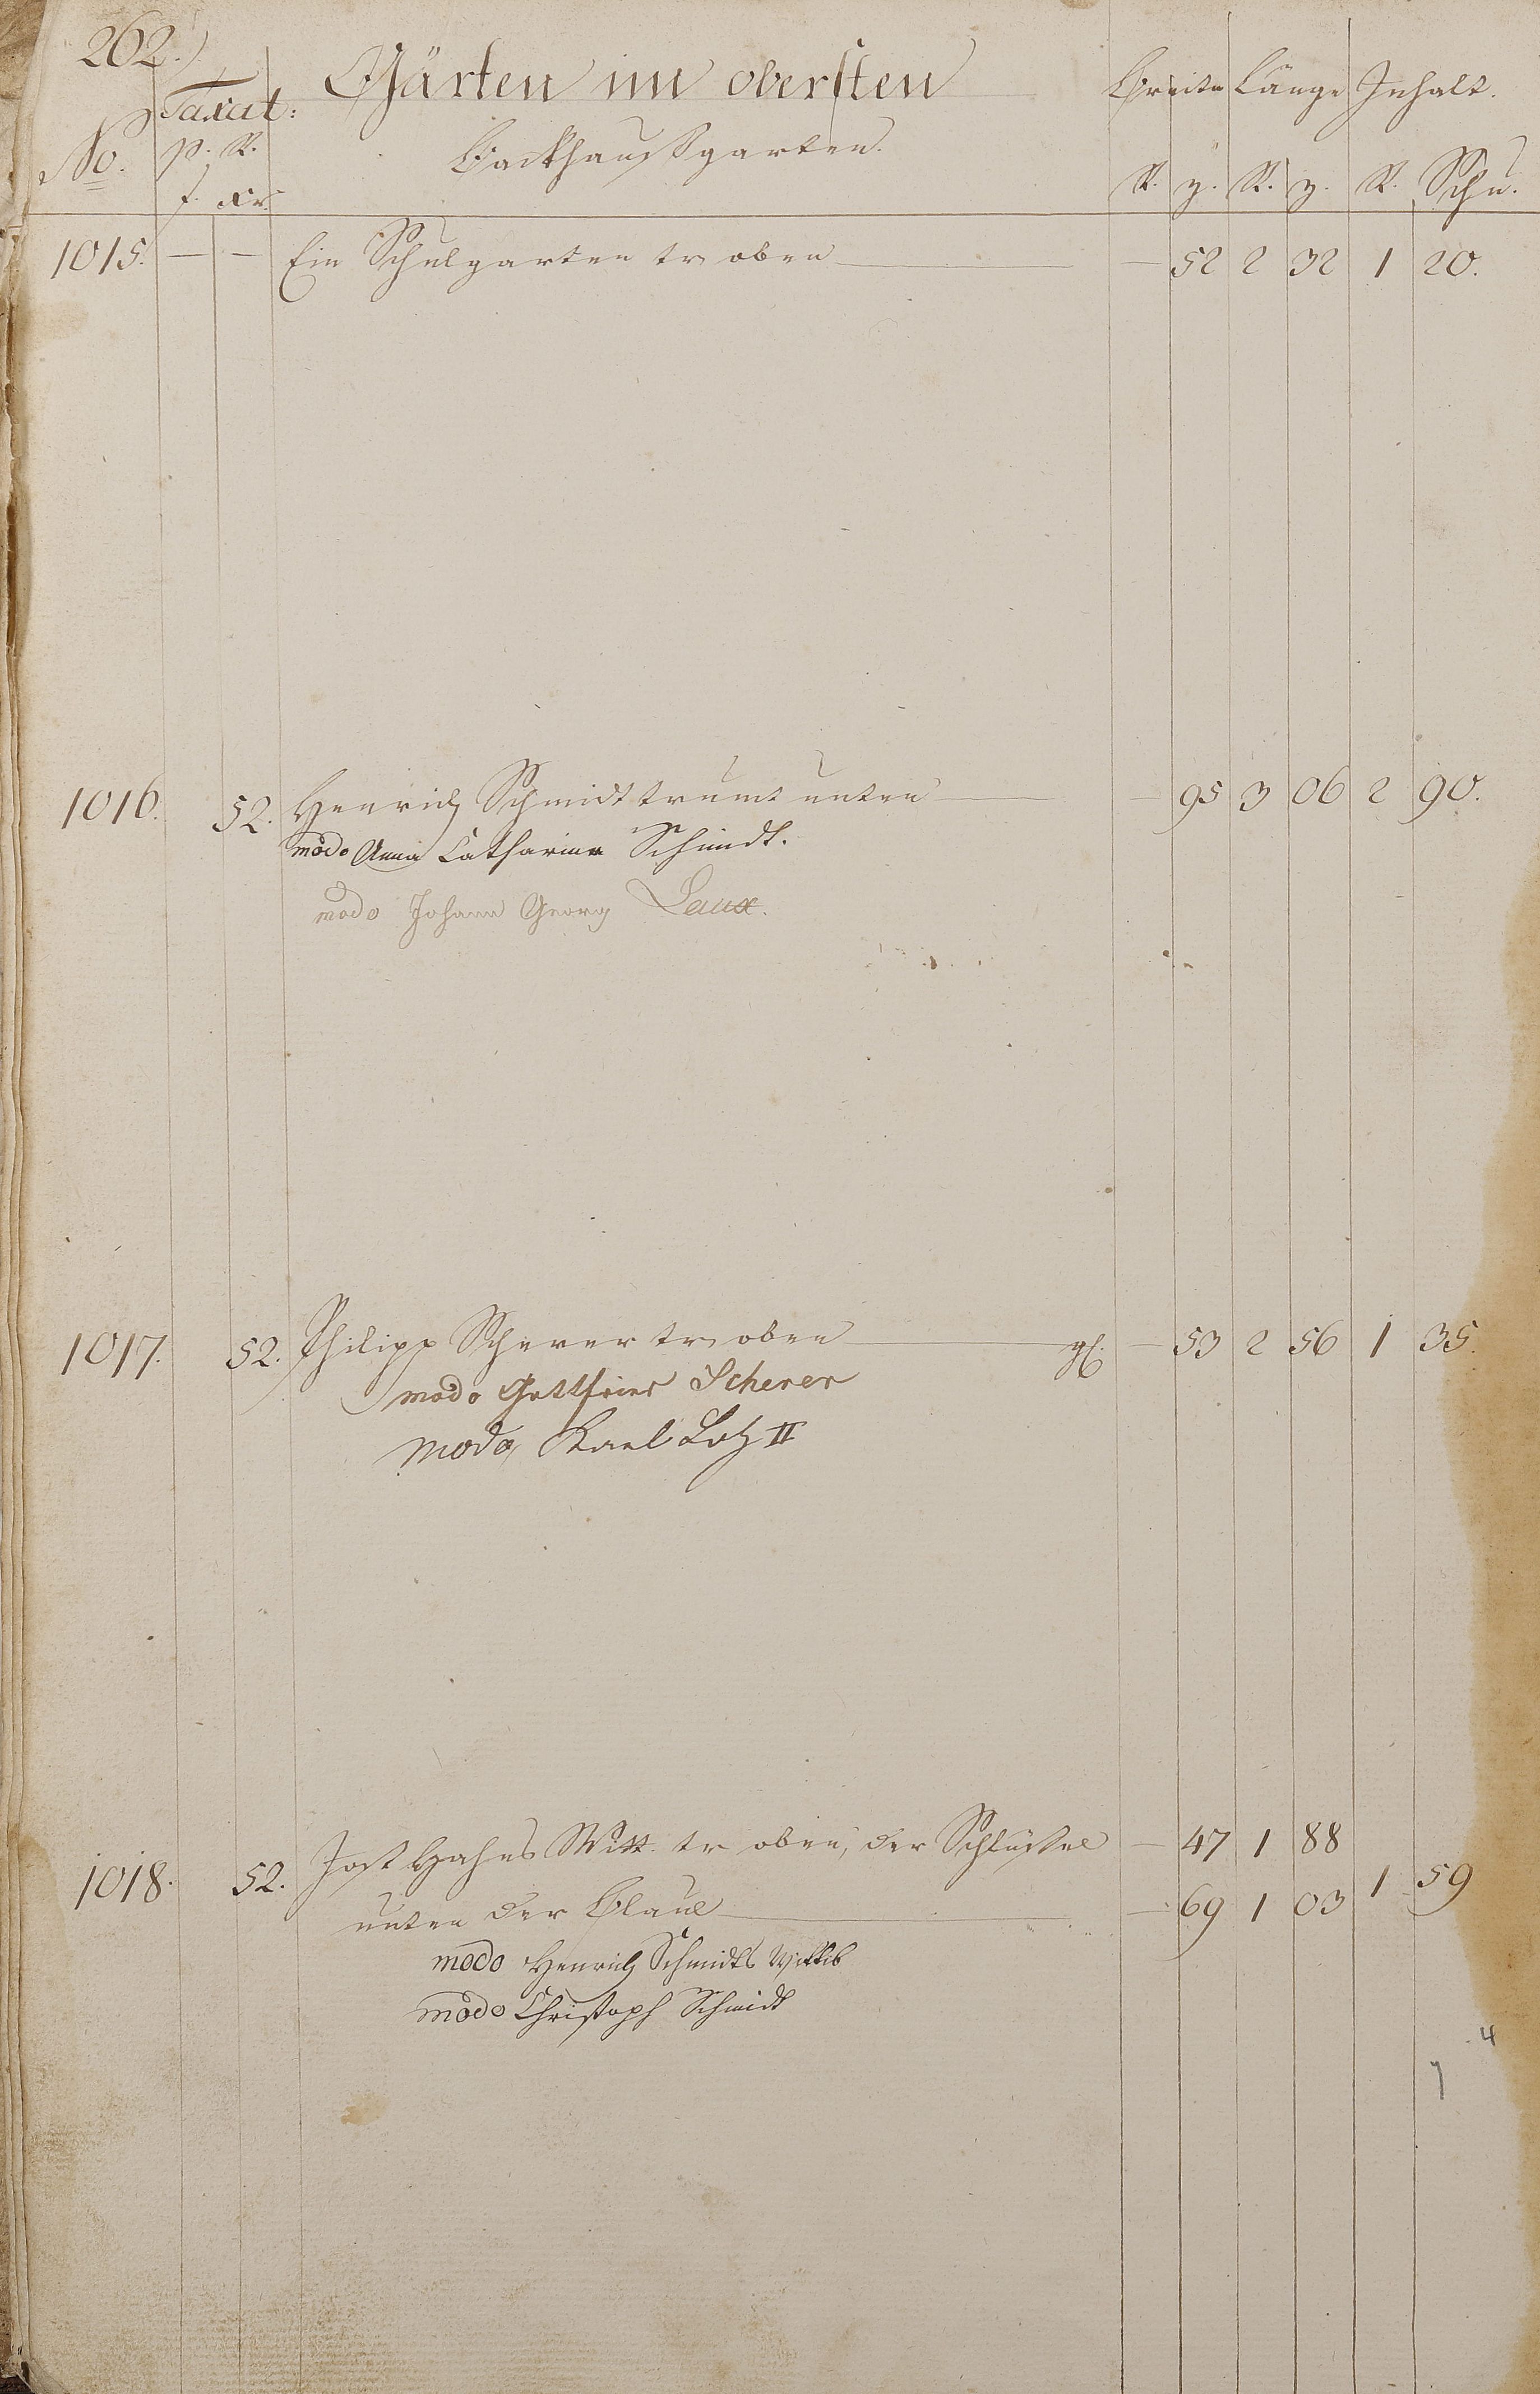 262.)
Taxat: Gärten im obersten Breite Länge Inhalt.
No. p. R. Backhaußgarten.
f. xr. R. z. R. z. R. Schu.
1015. — — Ein Schulgarten tr oben — 52 2 32 1 20.
1016. 52. Henrich Schmidt trumt unten — 95 3 06 2 90.
modo Anna Catharina Schmidt.
modo Johann Georg Laux.
1017. 52. Philipp Scherer tr oben gl. — 53 2 56 1 35.
modo Gottfried Scherer
modo Karl Lotz II
1018. 52. Jost Hahns Witt. tr oben, der Schlüssel — 47 1 88
unten der Blaul — 69 1 03 1 59
modo Henrich Schmidts Wittib
modo Christoph Schmidt
4